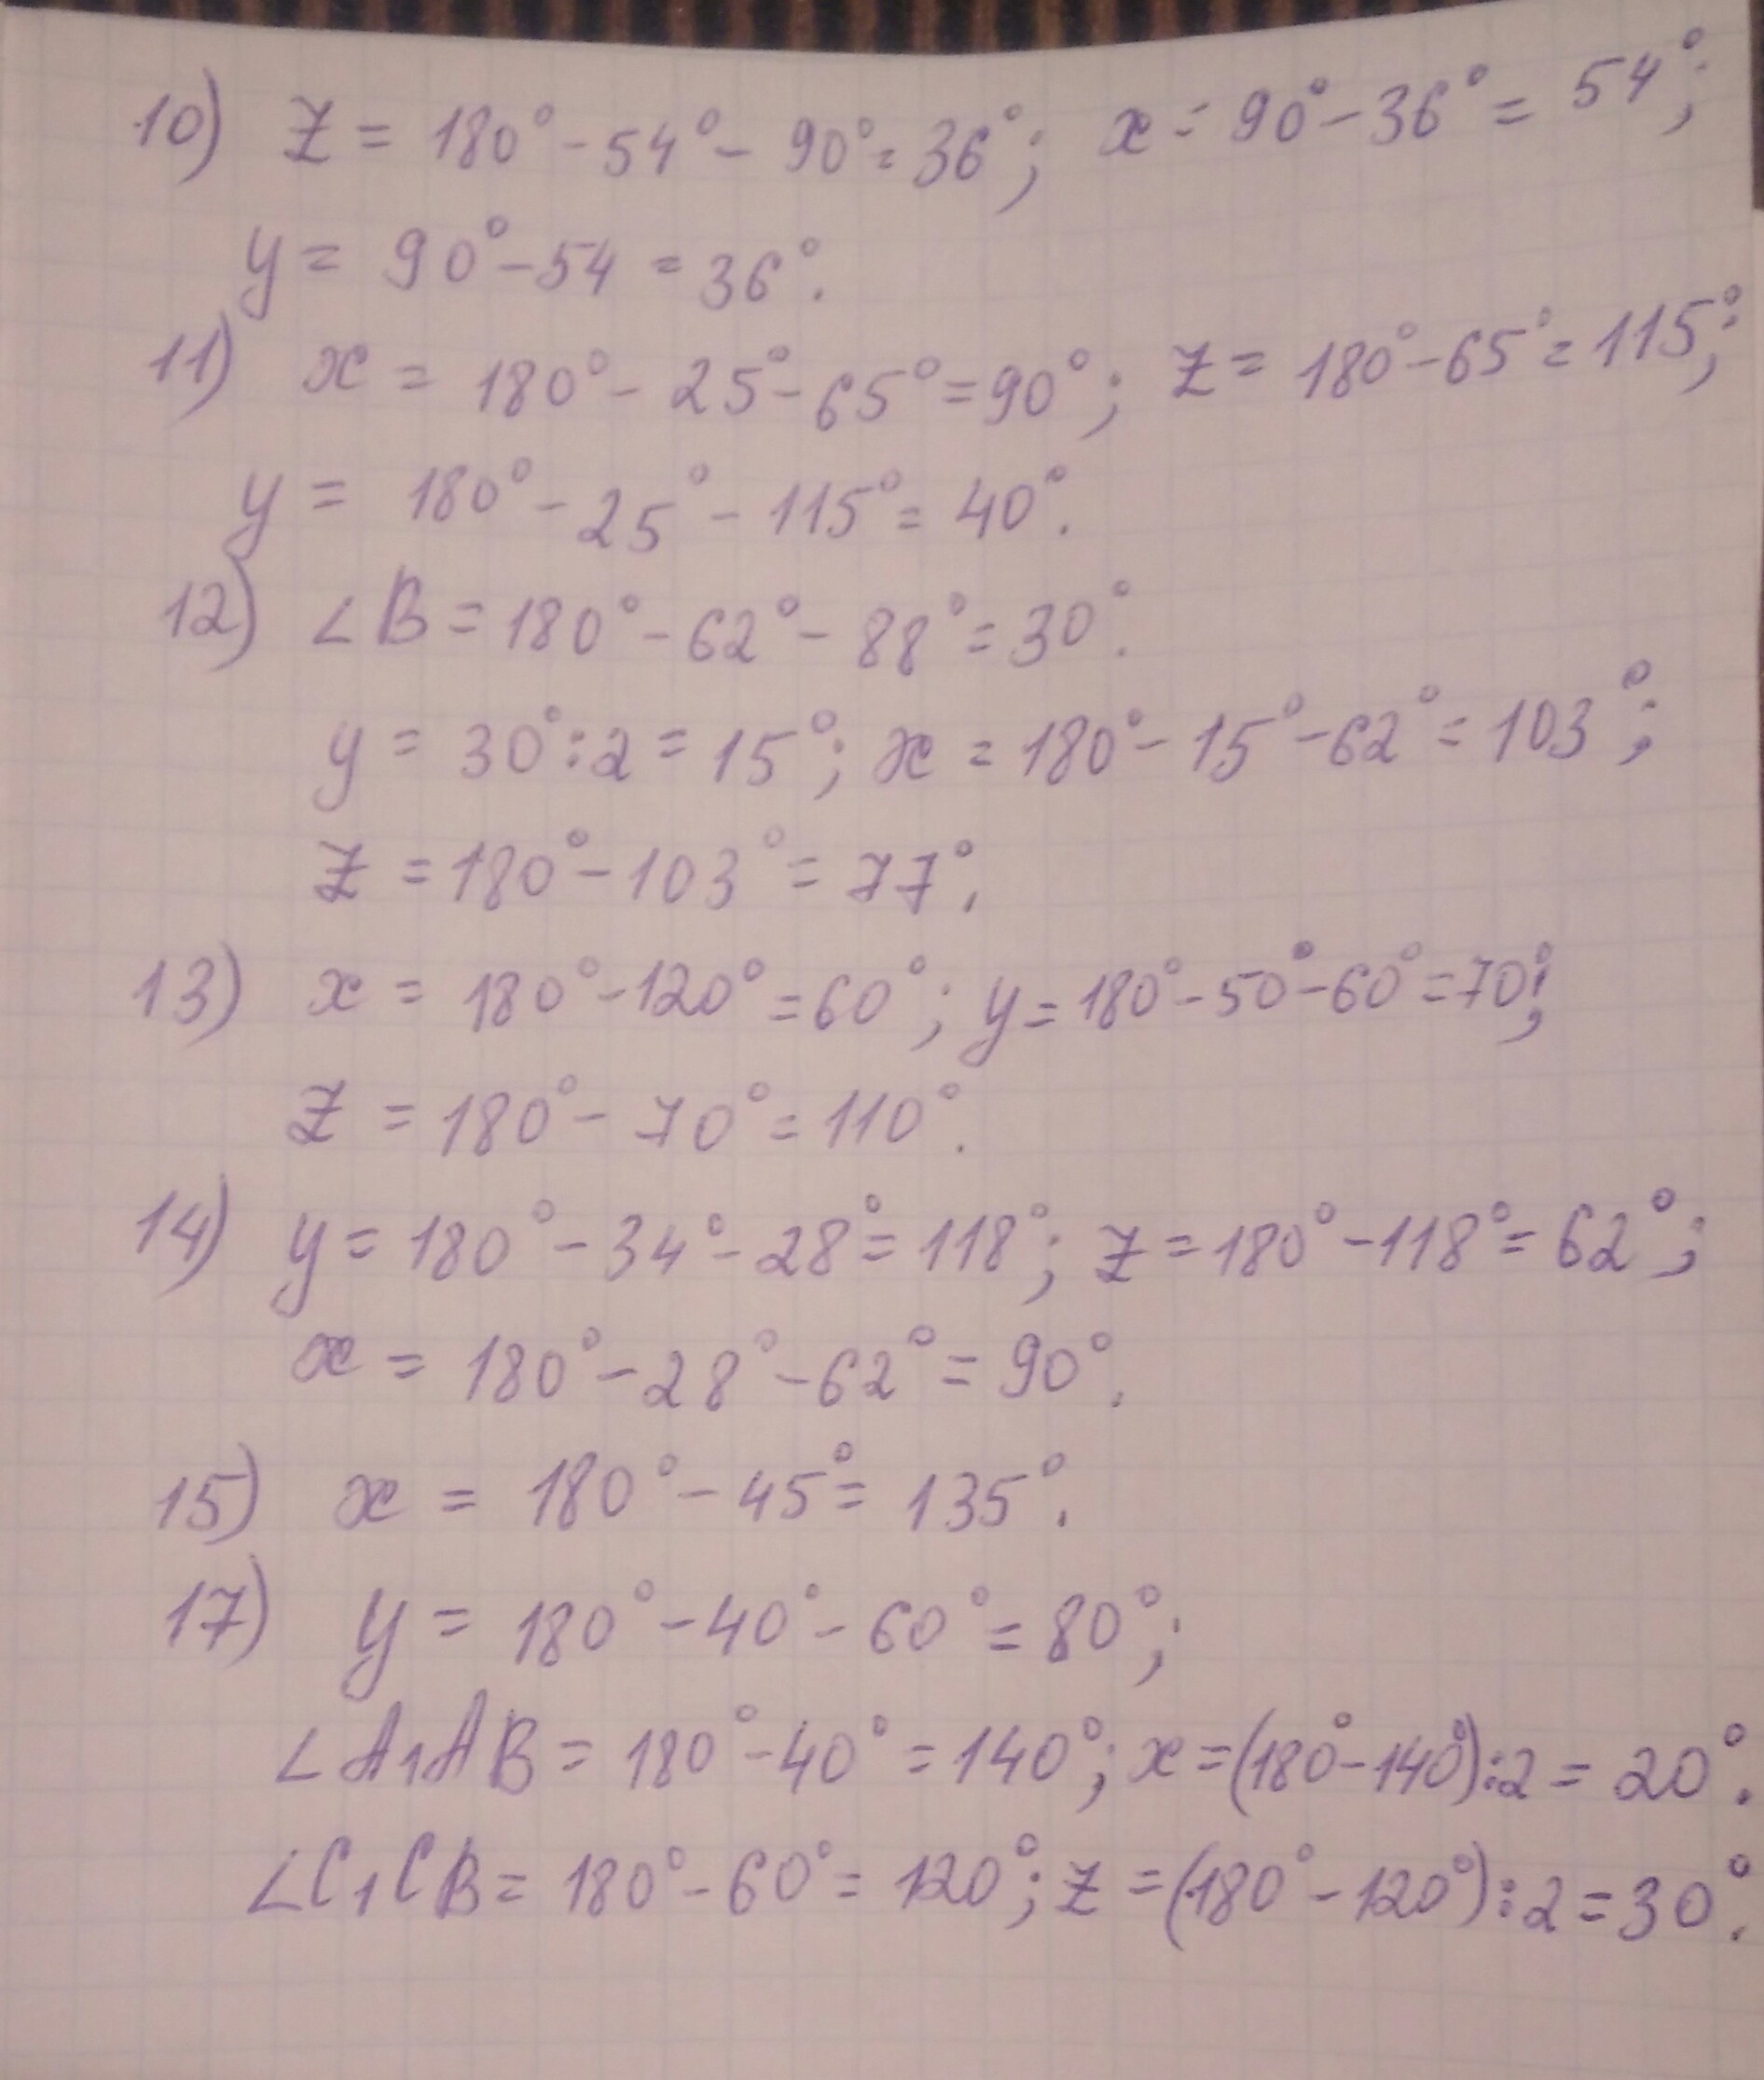 10) z = 180° - 54° - 90° = 36°; x = 90° - 36° = 54°;
y = 90° - 54 = 36°.
11) x = 180° - 25° - 65° = 90°; z = 180° - 65° = 115°;
y = 180° - 25° - 115° = 40°.
12) ∠B = 180° - 62° - 88° = 30°.
y = 30° : 2 = 15°; x = 180° - 15° - 62° = 103°;
z = 180° - 103° = 77°.
13) x = 180° - 120° = 60°; y = 180° - 50° - 60° = 70°;
z = 180° - 70° = 110°.
14) y = 180° - 34° - 28° = 118°; z = 180° - 118° = 62°;
x = 180° - 28° - 62° = 90°.
15) x = 180° - 45° = 135°.
17) y = 180° - 40° - 60° = 80°;
∠A₁AB = 180° - 40° = 140°; x = (180° - 140°) : 2 = 20°.
∠C₁CB = 180° - 60° = 120°; z = (180° - 120°) : 2 = 30°.